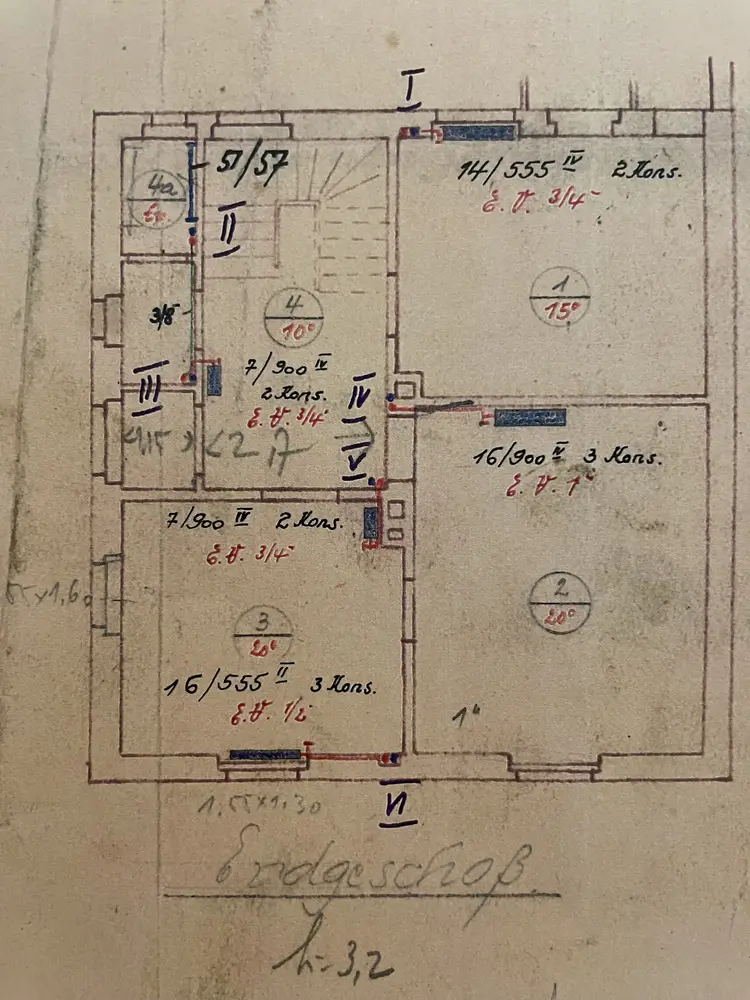 I
51/57
14/555 IV 2 Kons.
E.V. 3/4"
4a
II
1
15°
3/8"
4
10°
7/900 IV
2 Kons.
E.V. 3/4"
III
IV
1,15
2,7
V
16/900 IV 3 Kons.
E.V. 1"
7/900 IV 2 Kons.
E.V. 3/4"
2
20°
3
20°
16/555 II 3 Kons.
E.V. 1/2"
1"
1,55x1,30
VI
Erdgeschoß
h=3,2